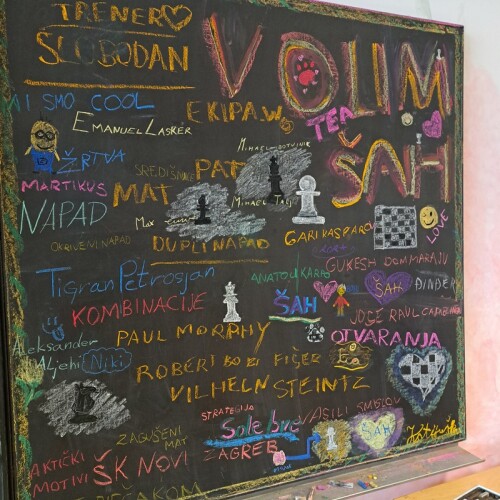 TRENER
SLOBODAN
VOLIM
ŠAH
TEA
MI SMO COOL
EKIPA
EMANUEL LASKER
MIHAEL BOTVINIK
ŽRTVA
SREDIŠNICA
PAT
MARTIKUS
MAT
MIHAEL TALJ
NAPAD
MAX
GARI KASPAROV
LOVE
OTKRIVENI NAPAD
DUPLI NAPAD
GUKESH DOMMARAJU
Tigran Petrosjan
ANATOLI KARPOV
ŠAH
ŠAH
ĐINĐER
KOMBINACIJE
JOSE RAUL CAPABLANCA
PAUL MORPHY
OTVARANJA
Aleksander
Aljehi
Niki
ROBERT BOBI FIŠER
VILHELN STEINTZ
STRATEGIJA
VASILI SMISLOV
ZAGUŠENI
MAT
ŠAH
TAKTIČKI
MOTIVI
ŠK NOVI
ZAGREB